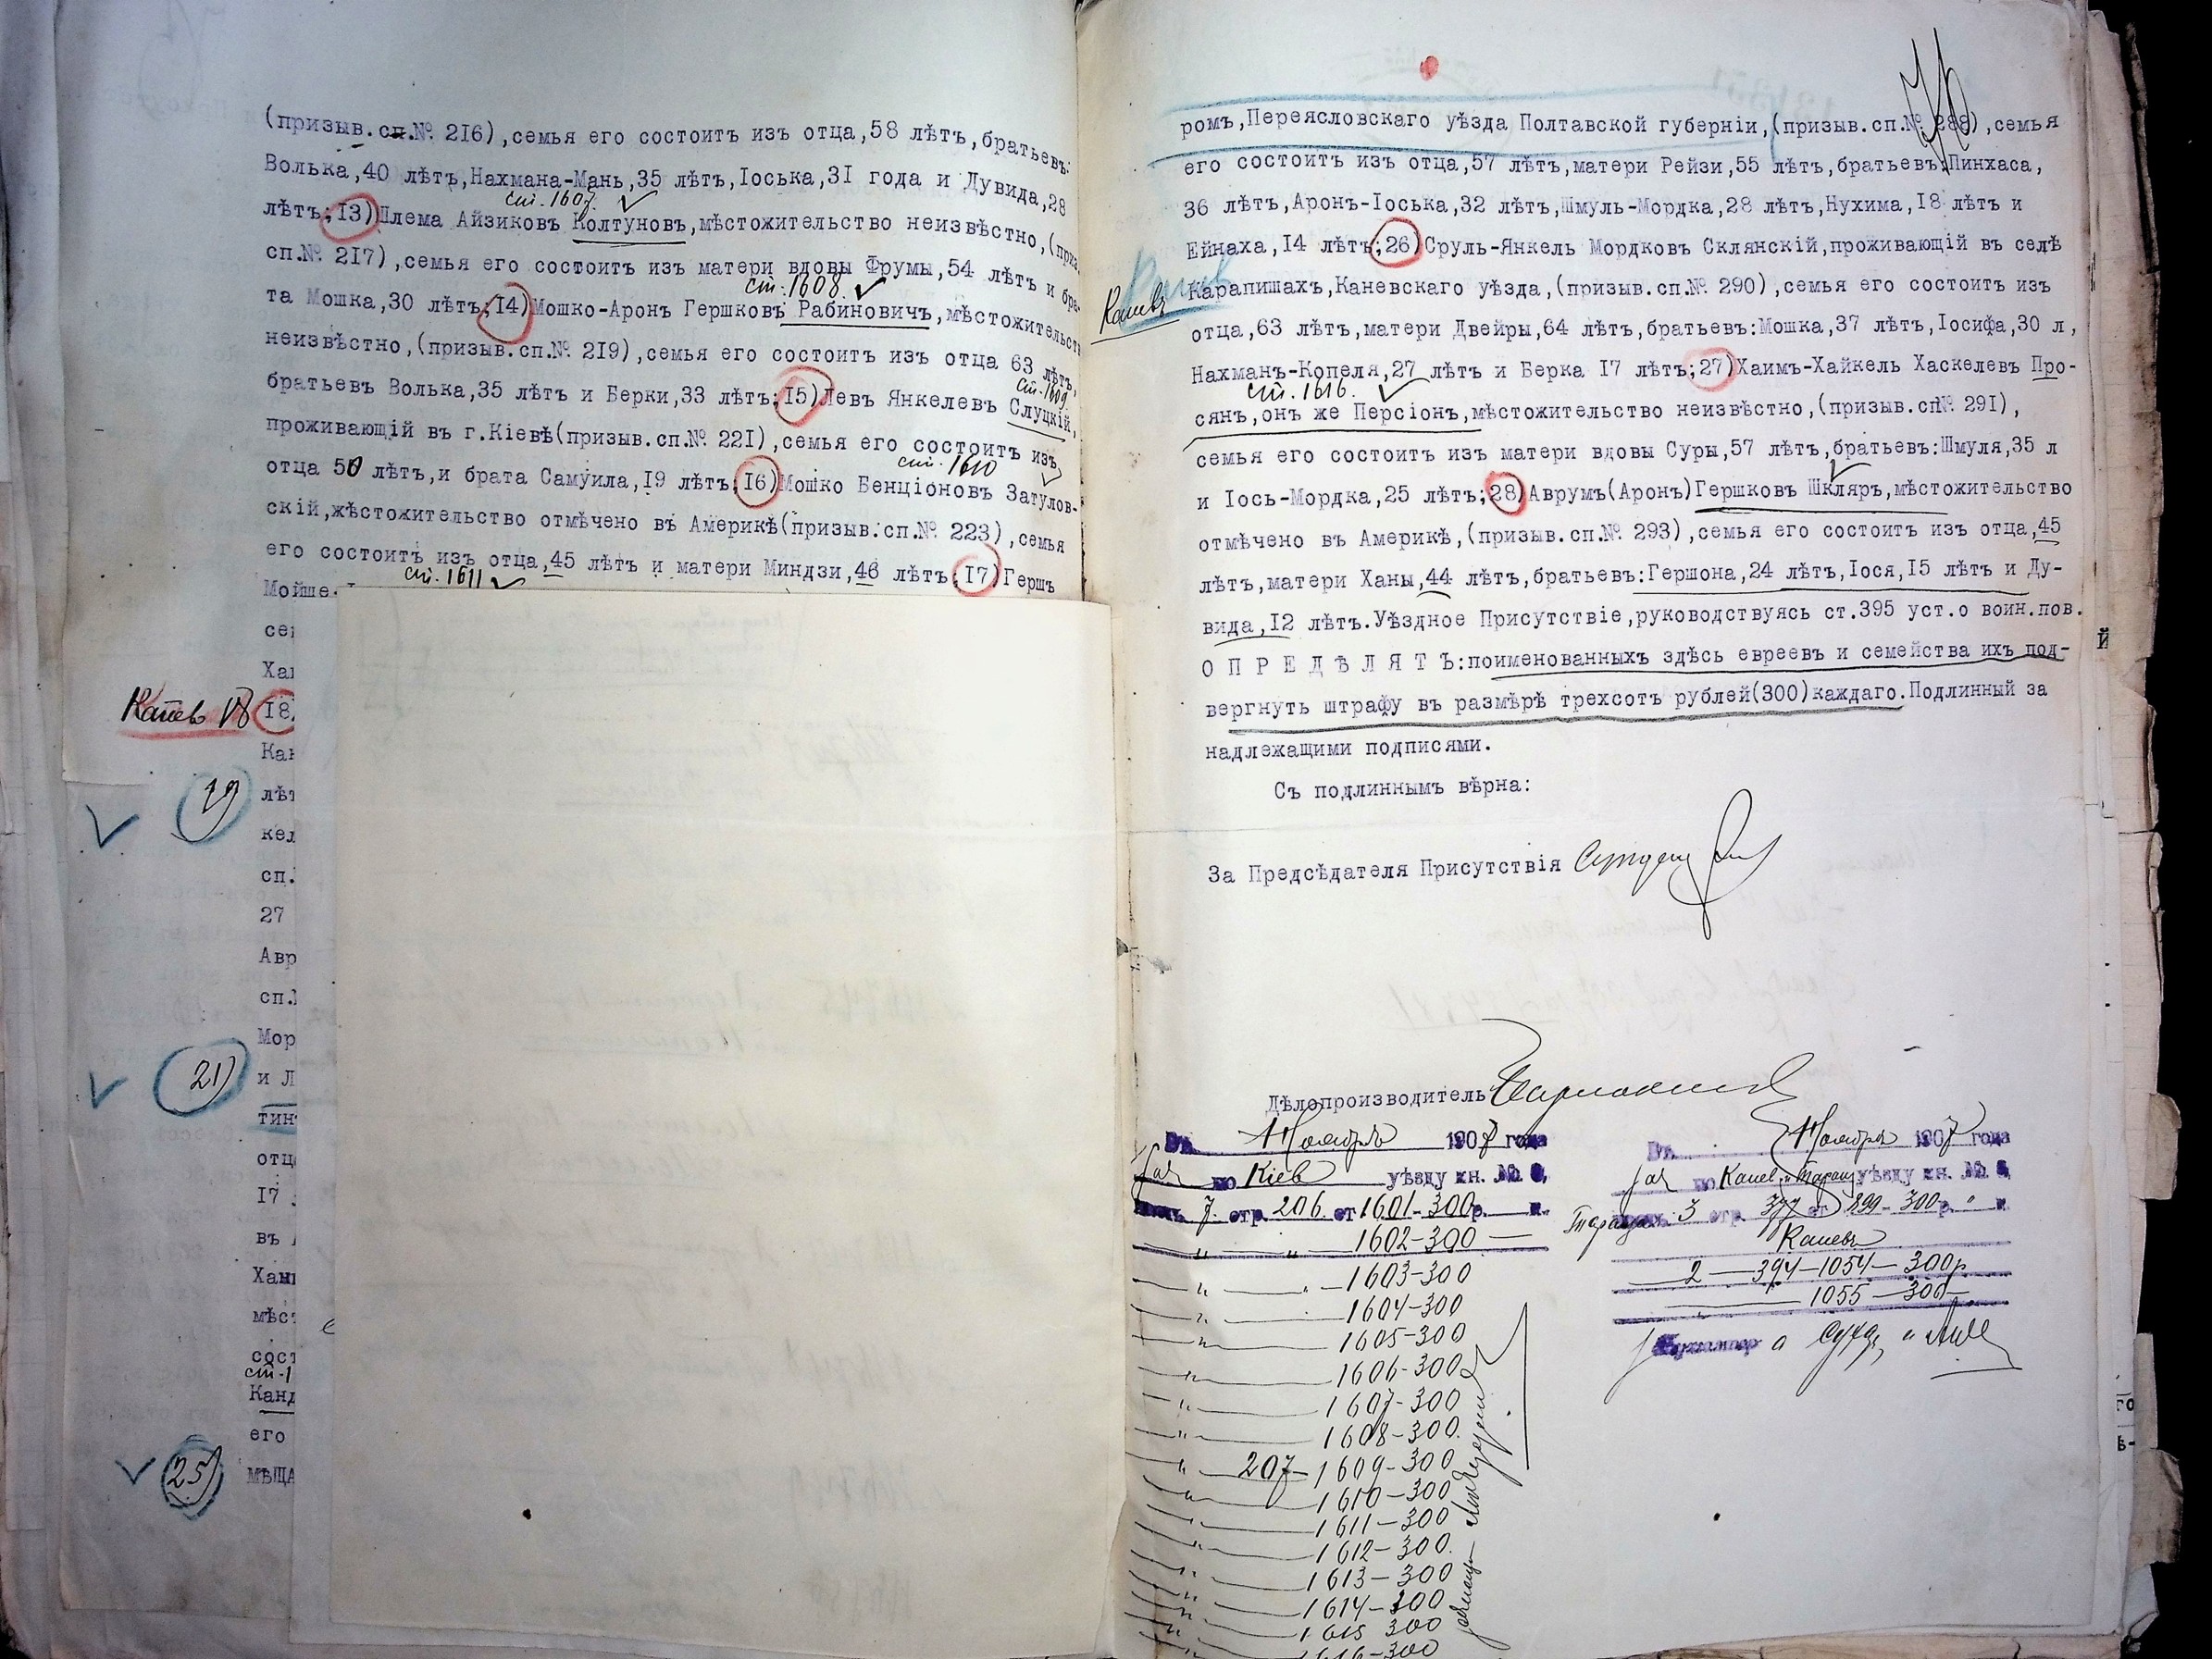 (призыв.сп.№ 216),семья его состоитъ изъ отца,58 лѣтъ,братьевъ:
Волька,40 лѣтъ,Нахмана-Мань,35 лѣтъ,Іоська,31 года и Дувида,28
ст. 1607.
лѣтъ;13)Шлема Айзиковъ Колтуновъ,мѣстожительство неизвѣстно,(приз.
сп.№ 217),семья его состоитъ изъ матери вдовы Фрумы,54 лѣтъ и бра-
ст. 1608.
та Мошка,30 лѣтъ;14)Мошко-Аронъ Гершковъ Рабиновичъ,мѣстожительст
неизвѣстно,(призыв.сп.№ 219),семья его состоитъ изъ отца 63 лѣтъ,
ст. 1609
братьевъ Волька,35 лѣтъ и Берки,33 лѣтъ;15)Левъ Янкелевъ Слуцкій,
проживающій въ г.Кіевѣ(призыв.сп.№ 221),семья его состоитъ изъ
ст. 1610
отца 50 лѣтъ,и брата Самуила,19 лѣтъ;16)Мошко Бенціоновъ Затулов-
скій,жѣстожительство отмѣчено въ Америкѣ(призыв.сп.№ 223),семья
его состоитъ изъ отца,45 лѣтъ и матери Миндзи,46 лѣтъ;17)Гершъ
ст. 1611
Мойше-
сем
Хай
Каневъ 18 18)
Кан
19) лѣт
кел
сп.
27
Авр
сп.
Мор
21) и Л
тин
отц
17
въ
Хан
мѣс
сост
ст.1
Канд
его
25) мѣща
76
ромъ,Переясловскаго уѣзда Полтавской губерніи,(призыв.сп.№ 288),семья
его состоитъ изъ отца,57 лѣтъ,матери Рейзи,55 лѣтъ,братьевъ:Пинхаса,
36 лѣтъ,Аронъ-Іоська,32 лѣтъ,Шмуль-Мордка,28 лѣтъ,Нухима,18 лѣтъ и
Ейнаха,14 лѣтъ;26)Сруль-Янкель Мордковъ Склянскій,проживающій въ селѣ
Каневъ
Карапишахъ,Каневскаго уѣзда,(призыв.сп.№ 290),семья его состоитъ изъ
отца,63 лѣтъ,матери Двейры,64 лѣтъ,братьевъ:Мошка,37 лѣтъ,Іосифа,30 л,
Нахманъ-Копеля,27 лѣтъ и Берка 17 лѣтъ;27)Хаимъ-Хайкель Хаскелевъ Про-
ст. 1616.
сянъ,онъ же Персіонъ,мѣстожительство неизвѣстно,(призыв.сп№ 291),
семья его состоитъ изъ матери вдовы Суры,57 лѣтъ,братьевъ:Шмуля,35 л
и Іось-Мордка,25 лѣтъ;28)Аврумъ(Аронъ)Гершковъ Шкляръ,мѣстожительство
отмѣчено въ Америкѣ,(призыв.сп.№ 293),семья его состоитъ изъ отца,45
лѣтъ,матери Ханы,44 лѣтъ,братьевъ:Гершона,24 лѣтъ,Іося,15 лѣтъ и Ду-
вида,12 лѣтъ.Уѣздное Присутствіе,руководствуясь ст.395 уст.о воин.пов.
О П Р Е Д Ѣ Л Я Т Ъ:поименованныхъ здѣсь евреевъ и семейства ихъ под-
вергнуть штрафу въ размѣрѣ трехсотъ рублей(300)каждаго.Подлинный за
надлежащими подписями.
Съ подлиннымъ вѣрна:
За Предсѣдателя Присутствія
Дѣлопроизводитель
Въ Ноябрѣ 1907 года
по Кіев уѣзду кн. №
7. стр. 206. ст 1601-300р. к.
" " 1602-300
" " 1603-300
" 1604-300
" 1605-300
" 1606-300
" 1607-300
" 1608-300.
" 207-1609-300
" 1610-300
" 1611-300
" 1612-300.
" 1613-300
" 1614-300
" 1615 300
" 1616-300
Въ Ноябрѣ 1907 года
по Канев. и Таращ уѣзду кн. №
Таращ 3 стр. 377 ст 899-300р. " к
Каневъ
2 — 394-1054-300р.
" 1055-300
Бухгалтеръ